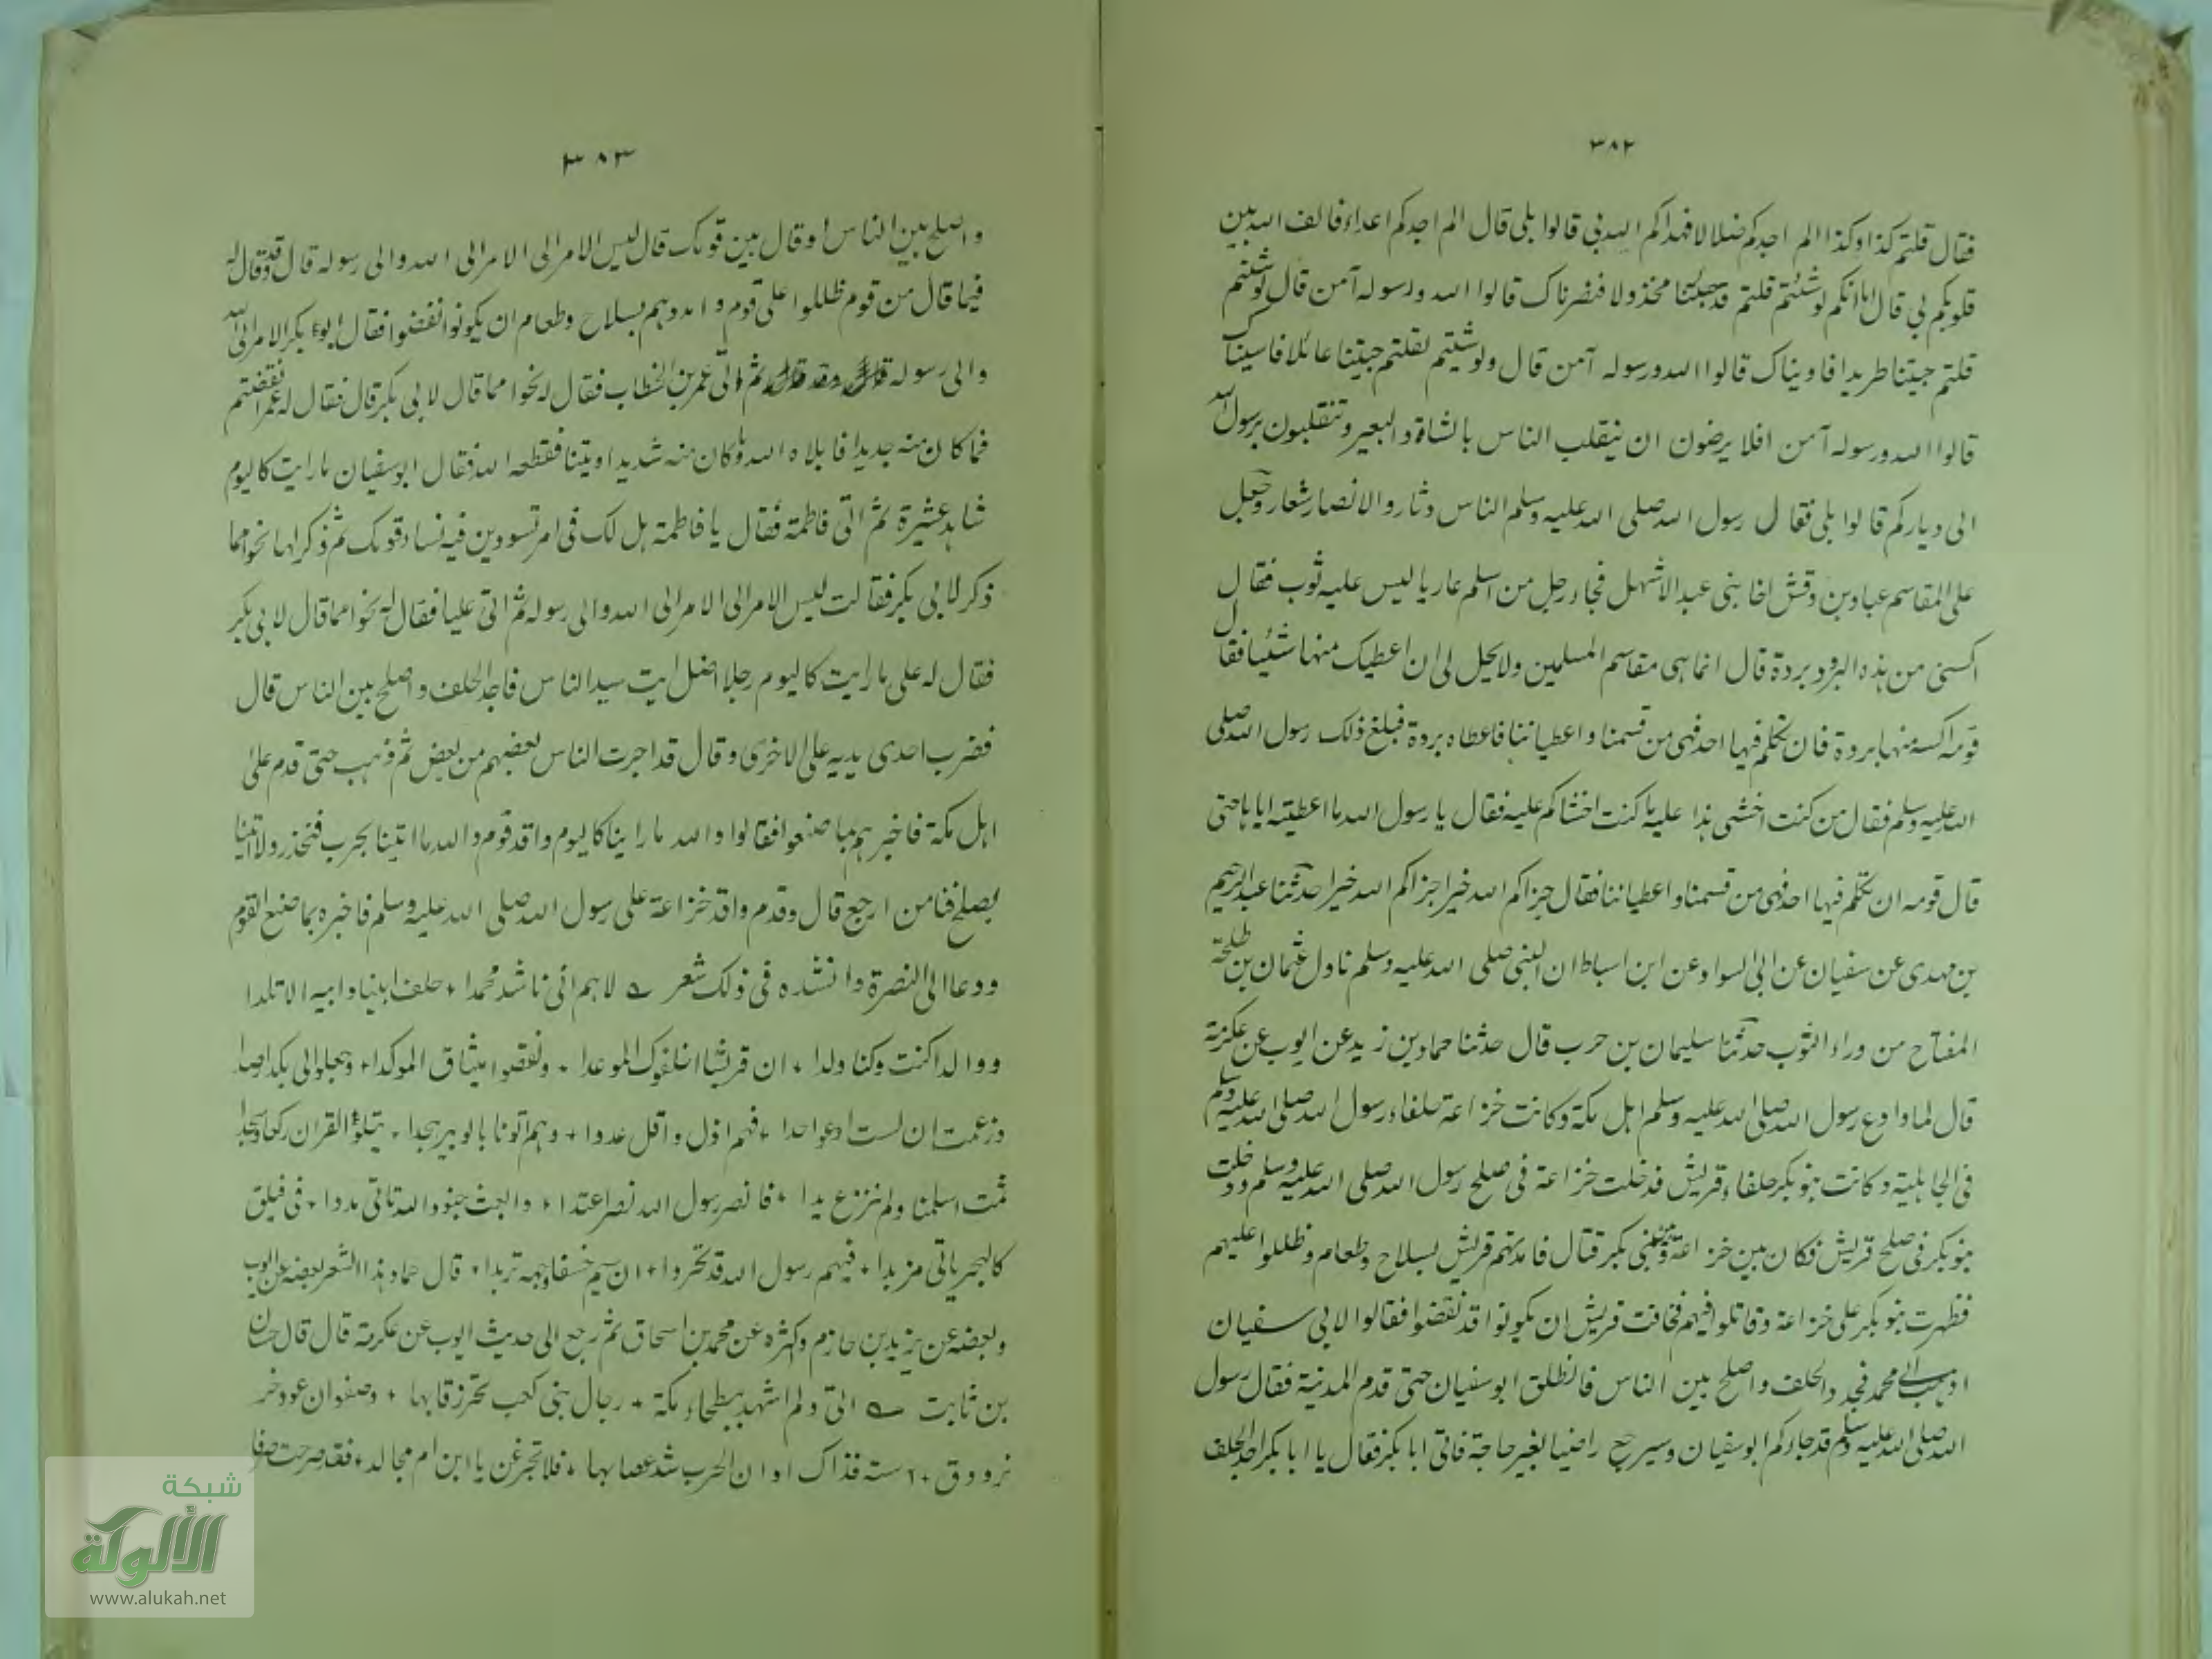 ٣٨٢
فقال قلتم كذا وكذا الم اجدكم ضلالا فهداكم الله بي قالوا بلى قال الم اجدكم اعداء فالف الله بين
قلوبكم بي قال اما انكم لو شئتم قلتم قد جئتنا مخذولا فنصرناك قالوا الله ورسوله آمن قال لو شئتم
قلتم جئتنا طريدا فاويناك قالوا الله ورسوله آمن قال ولو شئتم لقلتم جئتنا عائلا فاسيناك
قالوا الله ورسوله آمن افلا يرضون ان ينقلب الناس بالشاة والبعير وتنقلبون برسول الله
الى دياركم قالوا بلى فقال رسول الله صلى الله عليه وسلم الناس دثار والانصار شعار وجعل
على المقاسم عباد بن وقش اخا بني عبد الاشهل فجاء رجل من اسلم عاريا ليس عليه ثوب فقال
اكسنى من هذه البرود بردة قال انما هى مقاسم المسلمين ولا يحل لى ان اعطيك منها شئيا فقال
قومه اكسه منها بردة فان تكلم فيها احد فهى من قسمنا واعطياتنا فاعطاه بردة فبلغ ذلك رسول الله صلى
الله عليه وسلم فقال من كنت اخشى هذا عليه ما كنت اخشاكم عليه فقال يا رسول الله ما اعطيته اياها حتى
قال قومه ان تكلم فيها احد فهى من قسمنا واعطياتنا فقال جزاكم الله خيرا جزاكم الله خيرا حدثنا عبد الرحيم
بن مهدى عن سفيان عن ابى السواد عن ابن اسباط ان النبى صلى الله عليه وسلم ناول عثمان بن طلحة
المفتاح من وراء الثوب حدثنا سليمان بن حرب قال حدثنا حماد بن زيد عن ايوب عن عكرمة
قال لما وادع رسول الله صلى الله عليه وسلم اهل مكة وكانت خزاعة حلفاء رسول الله صلى الله عليه وسلم
فى الجاهلية وكانت بنو بكر حلفاء قريش فدخلت خزاعة فى صلح رسول الله صلى الله عليه وسلم ودخلت
بنو بكر فى صلح قريش فكان بين خزاعة وبين بنى بكر قتال فامدتهم قريش بسلاح وطعام وظللوا عليهم
فظهرت بنو بكر على خزاعة وقاتلوا فيهم فخافت قريش ان يكونوا قد نقضوا فقالوا لابى سفيان
اذهب الى محمد فجدد الحلف واصلح بين الناس فانطلق ابو سفيان حتى قدم المدنية فقال رسول
الله صلى الله عليه وسلم قد جاءكم ابو سفيان وسيرجع راضيا بغير حاجة فاتى ابا بكر فقال يا ابا بكر اجد الحلف
٣٨٣
واصلح بين الناس او قال بين قومك قال ليس الامر الى الامر الى الله والى رسوله قال وقد قال له
فيما قال من قوم ظللوا على قوم وامدوهم بسلاح وطعام ان يكونوا نقضوا فقال ابو بكر الامر الى الله
والى رسوله ثم اتى عمر بن الخطاب فقال له نحوا مما قال لابى بكر قال فقال له عمر انقضتم
فما كان منه جديدا فابلاه الله وما كان منه شديدا او متينا فقطعه الله فقال ابو سفيان ما رايت كاليوم
شاهد عشيرة ثم اتى فاطمة فقال يا فاطمة هل لك فى امر تسودين فيه نساء قومك ثم ذكر لها نحوا مما
ذكر لابى بكر فقالت ليس الامر الى الامر الى الله والى رسوله ثم اتى عليا فقال له نحوا مما قال لابى بكر
فقال له على ما رايت كاليوم رجلا اضل انت سيد الناس فاجد الحلف واصلح بين الناس قال
فضرب احدى يديه على الاخرى وقال قد اجرت الناس بعضهم من بعض ثم ذهب حتى قدم على
اهل مكة فاخبرهم بما صنعوا فقالوا والله ما راينا كاليوم وافد قوم والله ما اتيتنا بحرب فنحذر ولا اتيتنا
بصلح فنامن ارجع قال وقدم وافد خزاعة على رسول الله صلى الله عليه وسلم فاخبره بما صنع القوم
ودعا الى النصرة وانشده فى ذلك شعر لاهم انى ناشد محمدا + حلف ابينا وابيه الاتلدا
ووالدا كنت وكنا ولدا + ان قريشا اخلفوك الموعدا + ونقضوا ميثاق الموكدا + وجعلوا لى بكدا رصدا
وزعمت ان لست ادعو احدا + فهم اذل واقل عددا + وهم اتونا بالوتير هجدا + يتلوا القران ركعا وسجدا
ثمت اسلمنا ولم ننزع يدا + فانصر رسول الله نصرا عتدا + وابعث جنود الله تاتى مددا + فى فيلق
كالبحر ياتى مزبدا + فيهم رسول الله قد تحردوا + ان سيم خسفا وجهه تربدا + قال حماد هذا الشعر بعضه عن ايوب
وبعضه عن يزيد بن حازم واكثره عن محمد بن اسحاق ثم رجع الى حديث ايوب عن عكرمة قال قال حسان
بن ثابت اتى ولم اشهد ببطحاء مكة + رجال بنى كعب تحز رقابها + وصفوان عود خر
ز ودق + استه فذاك اوان الحرب شد عصابها + فلا تجزعن يا ابن ام مجالد + فقد صرحت صفا
شبكة
الألوكة
www.alukah.net